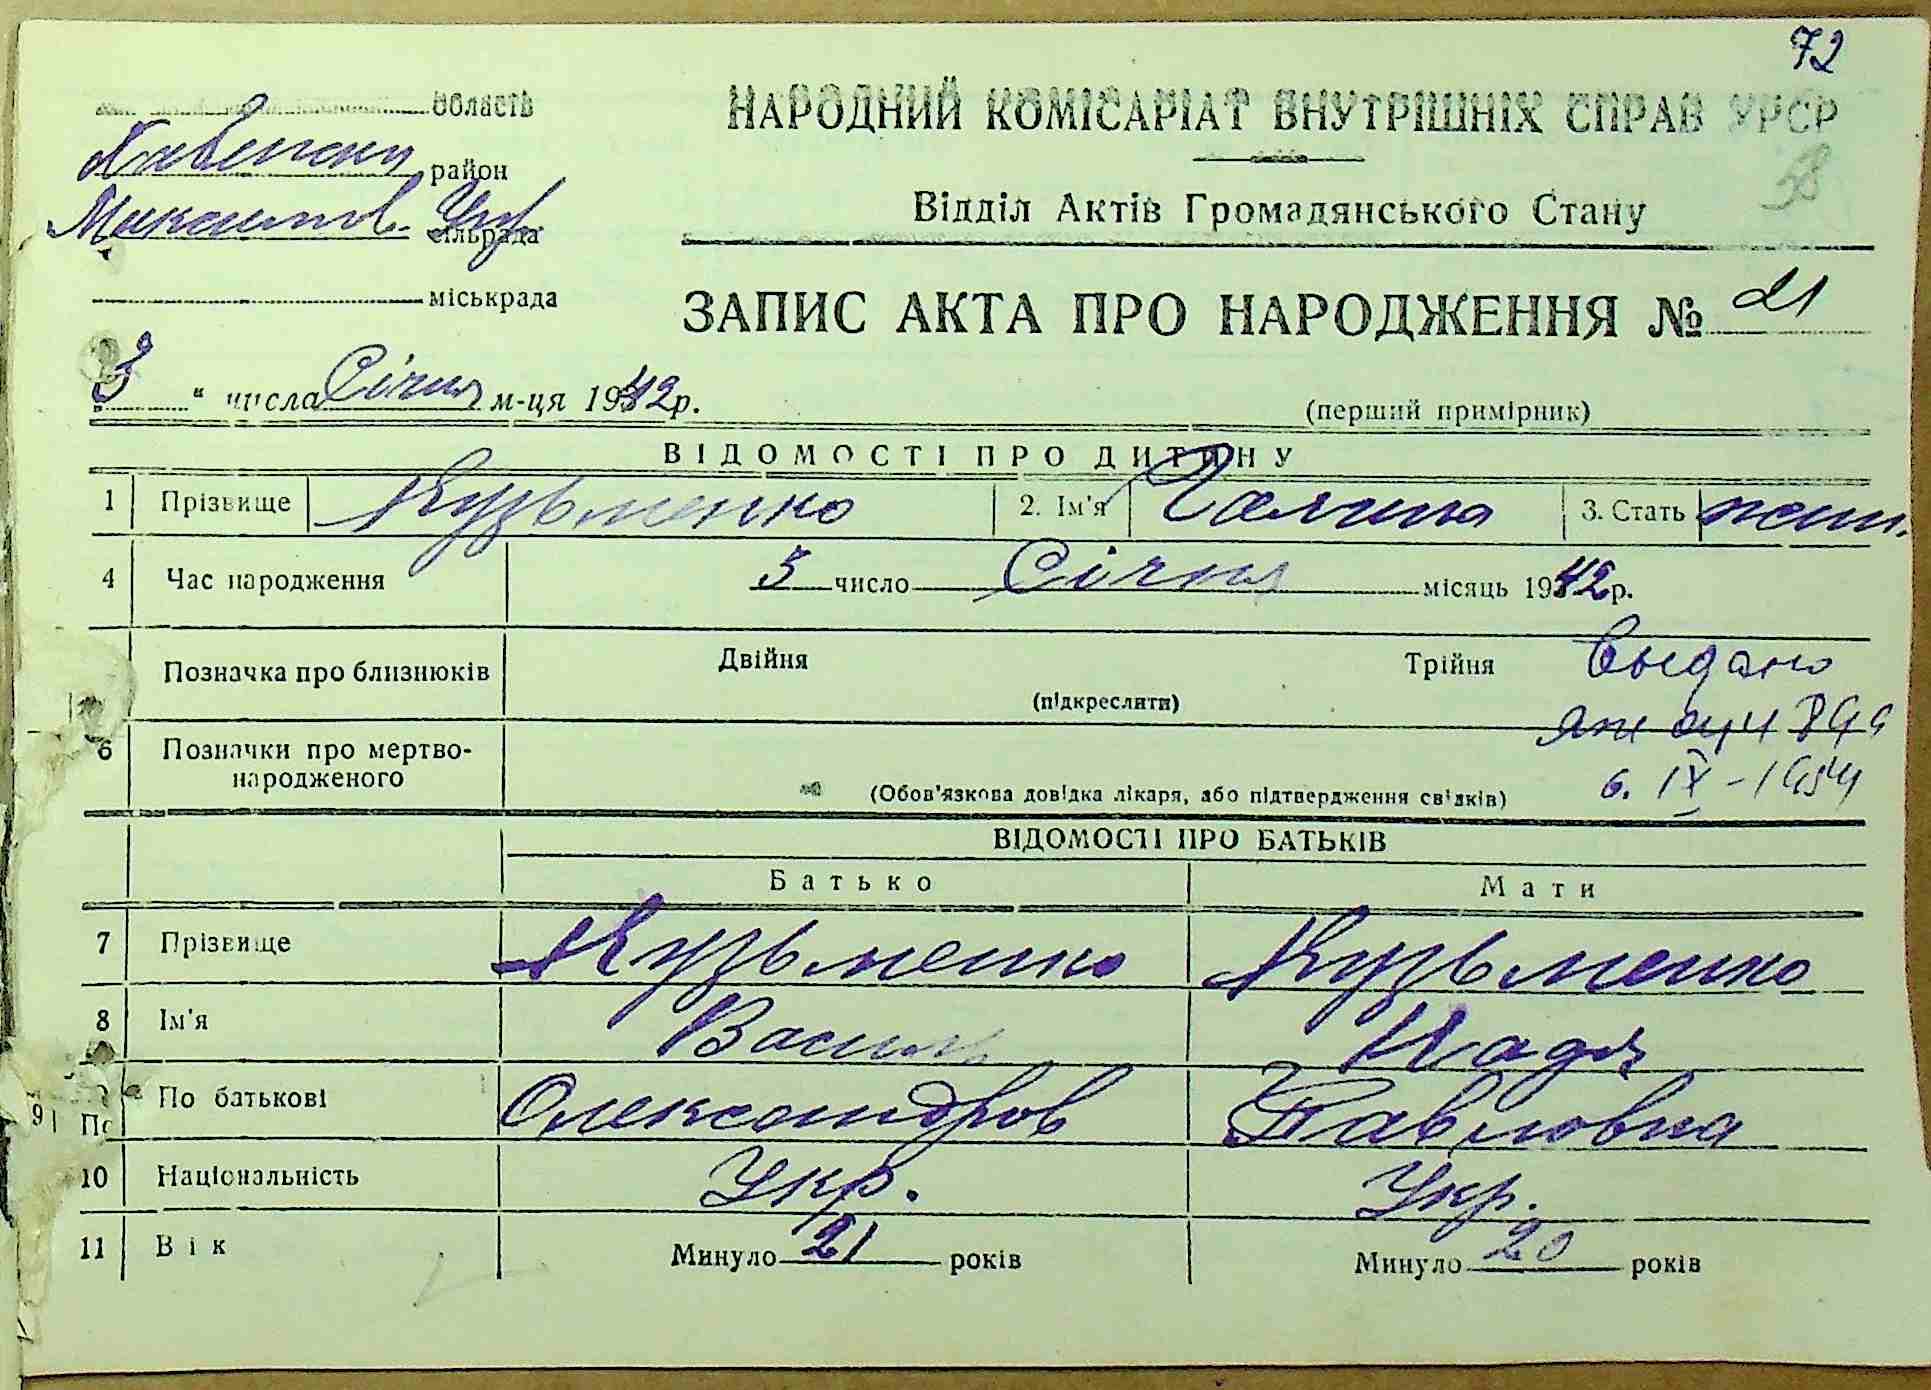 72
область
НАРОДНИЙ КОМІСАРІАТ ВНУТРІШНІХ СПРАВ УРСР
район
58
Відділ Актів Громадянського Стану
сільрада
міськрада
ЗАПИС АКТА ПРО НАРОДЖЕННЯ № 21
3 " числа Січня м-ця 1942р.
(перший примірник)
ВІДОМОСТІ ПРО ДИТИНУ
1 Прізвище Кузьменко 2. Ім'я Галина 3. Стать жін.
4 Час народження 3 число Січня місяць 1942р.
Позначка про близнюків Двійня Трійня
(підкреслити)
Выдано
6 Позначки про мертво-
народженого
(Обов'язкова довідка лікаря, або підтвердження свідків)
6. IX - 1954
ВІДОМОСТІ ПРО БАТЬКІВ
Батько Мати
7 Прізвище Кузьменко Кузьменко
8 Ім'я Василь Надя
По батькові Олександров Павловна
10 Національність Укр. Укр.
11 Вік Минуло 21 років Минуло 20 років